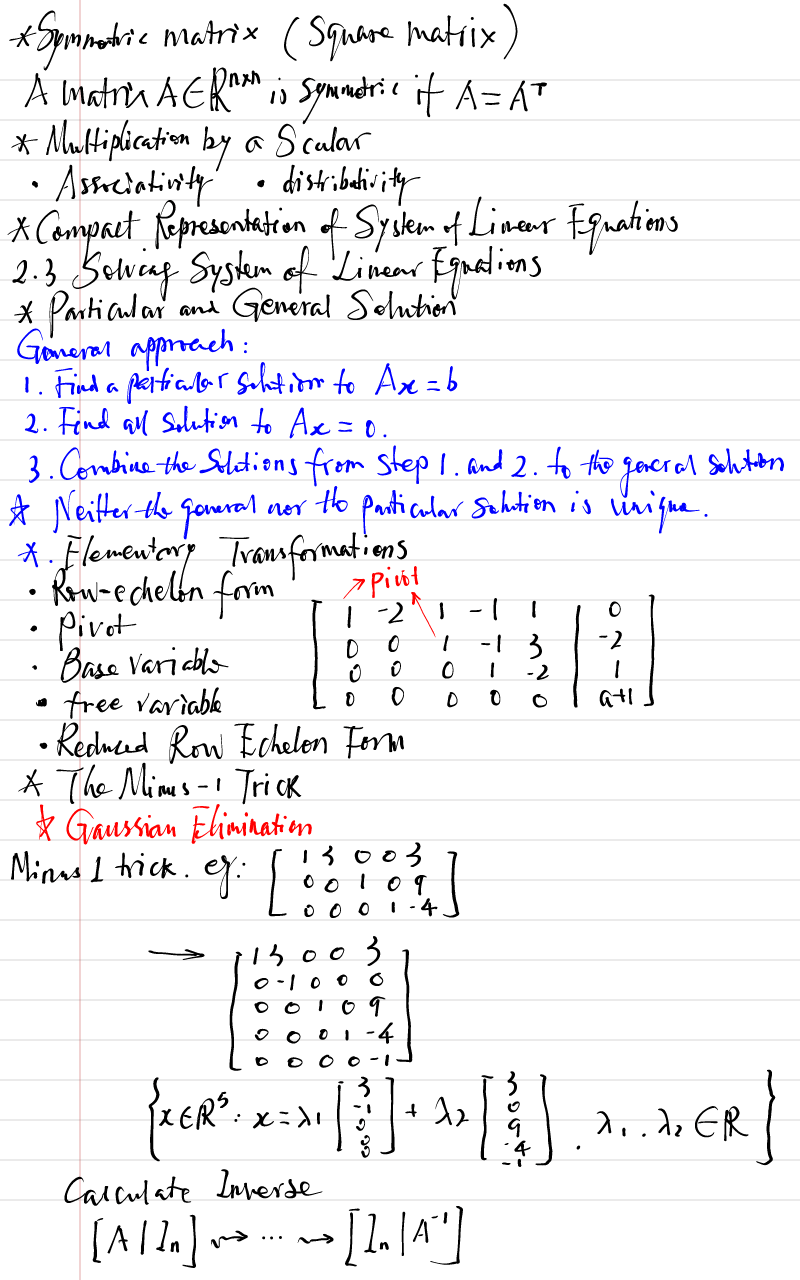 * Symmetric matrix (Square matrix)
A matrix A∈ℝⁿˣⁿ is symmetric if A = Aᵀ
* Multiplication by a Scalar
· Associativity · distributivity
* Compact Representation of System of Linear Equations
2.3 Solving System of Linear Equations
* Particular and General Solution
General approach:
1. Find a particular solution to Ax = b
2. Find all solution to Ax = 0.
3. Combine the Solutions from step 1. and 2. to the general solution
* Neither the general nor the particular solution is unique.
*. Elementary Transformations
· Row-echelon form
pivot
· Pivot
· Base variable
· free variable
[ 1 -2 1 -1 1 | 0
0 0 1 -1 3 | -2
0 0 0 1 -2 | 1
0 0 0 0 0 | a+1 ]
· Reduced Row Echelon Form
* The Minus-1 Trick
* Gaussian Elimination
Minus 1 trick. eg: [ 1 3 0 0 3
0 0 1 0 9
0 0 0 1 -4 ]
→ [ 1 3 0 0 3
0 -1 0 0 0
0 0 1 0 9
0 0 0 1 -4
0 0 0 0 -1 ]
{ x∈ℝ⁵: x = λ₁ [ 3 -1 0 0 0 ] + λ₂ [ 3 0 9 -4 -1 ] . λ₁. λ₂ ∈ ℝ }
Calculate Inverse
[A | Iₙ] ⇝ ··· ⇝ [Iₙ | A⁻¹]